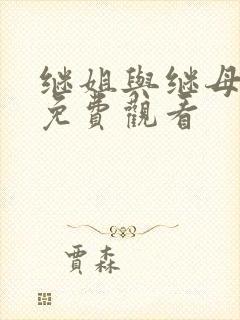 继姐與继母
免費觀看
賈森